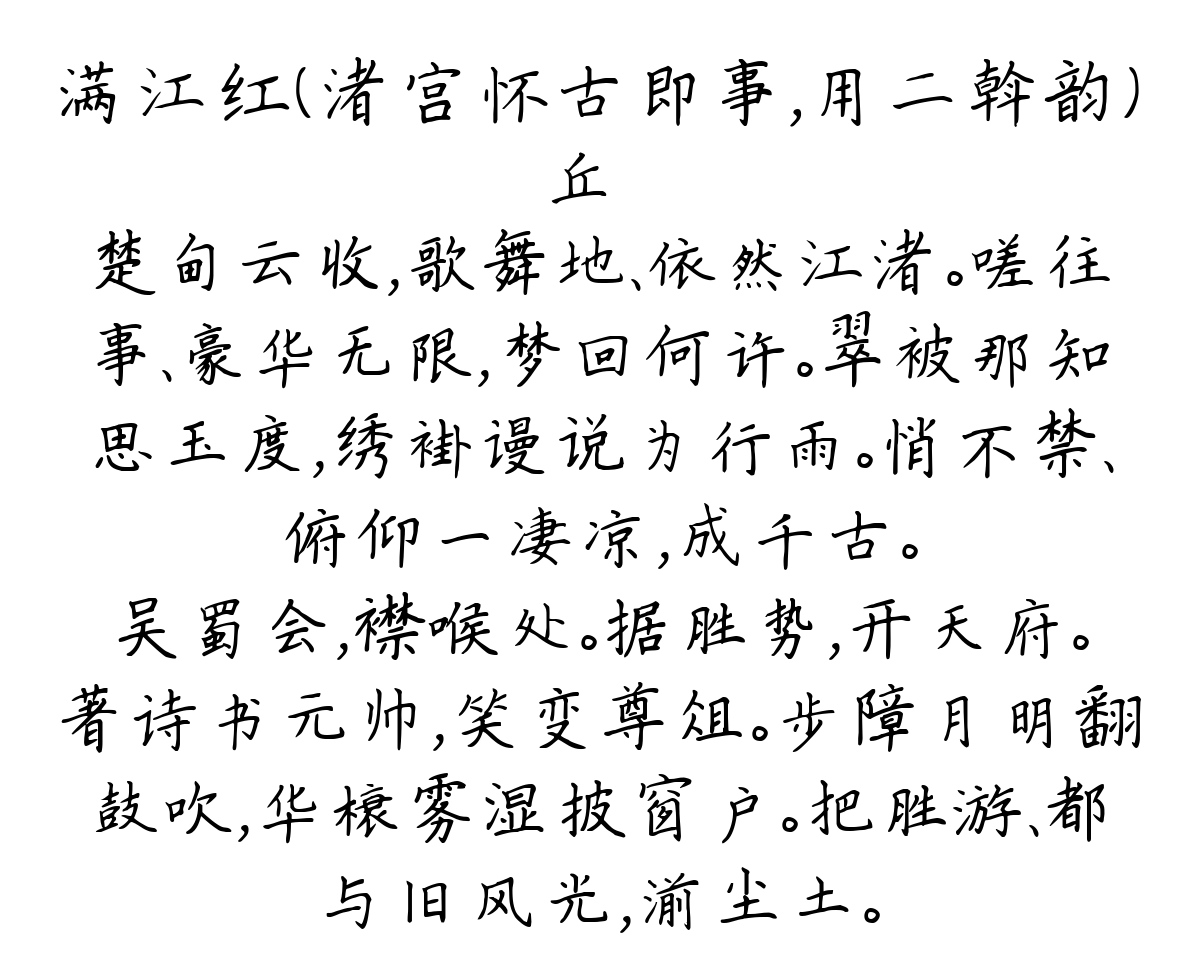 满江红(渚宫怀古即事,用二斡韵)
丘
楚甸云收,歌舞地、依然江渚。嗟往
事、豪华无限,梦回何许。翠被那知
思玉度,绣褂谩说为行雨。悄不禁、
俯仰一凄凉,成千古。
吴蜀会,襟喉处。据胜势,开天府。
著诗书元帅,笑变尊俎。步障月明翻
鼓吹,华榱雾湿披窗户。把胜游、都
与旧风光,湔尘土。